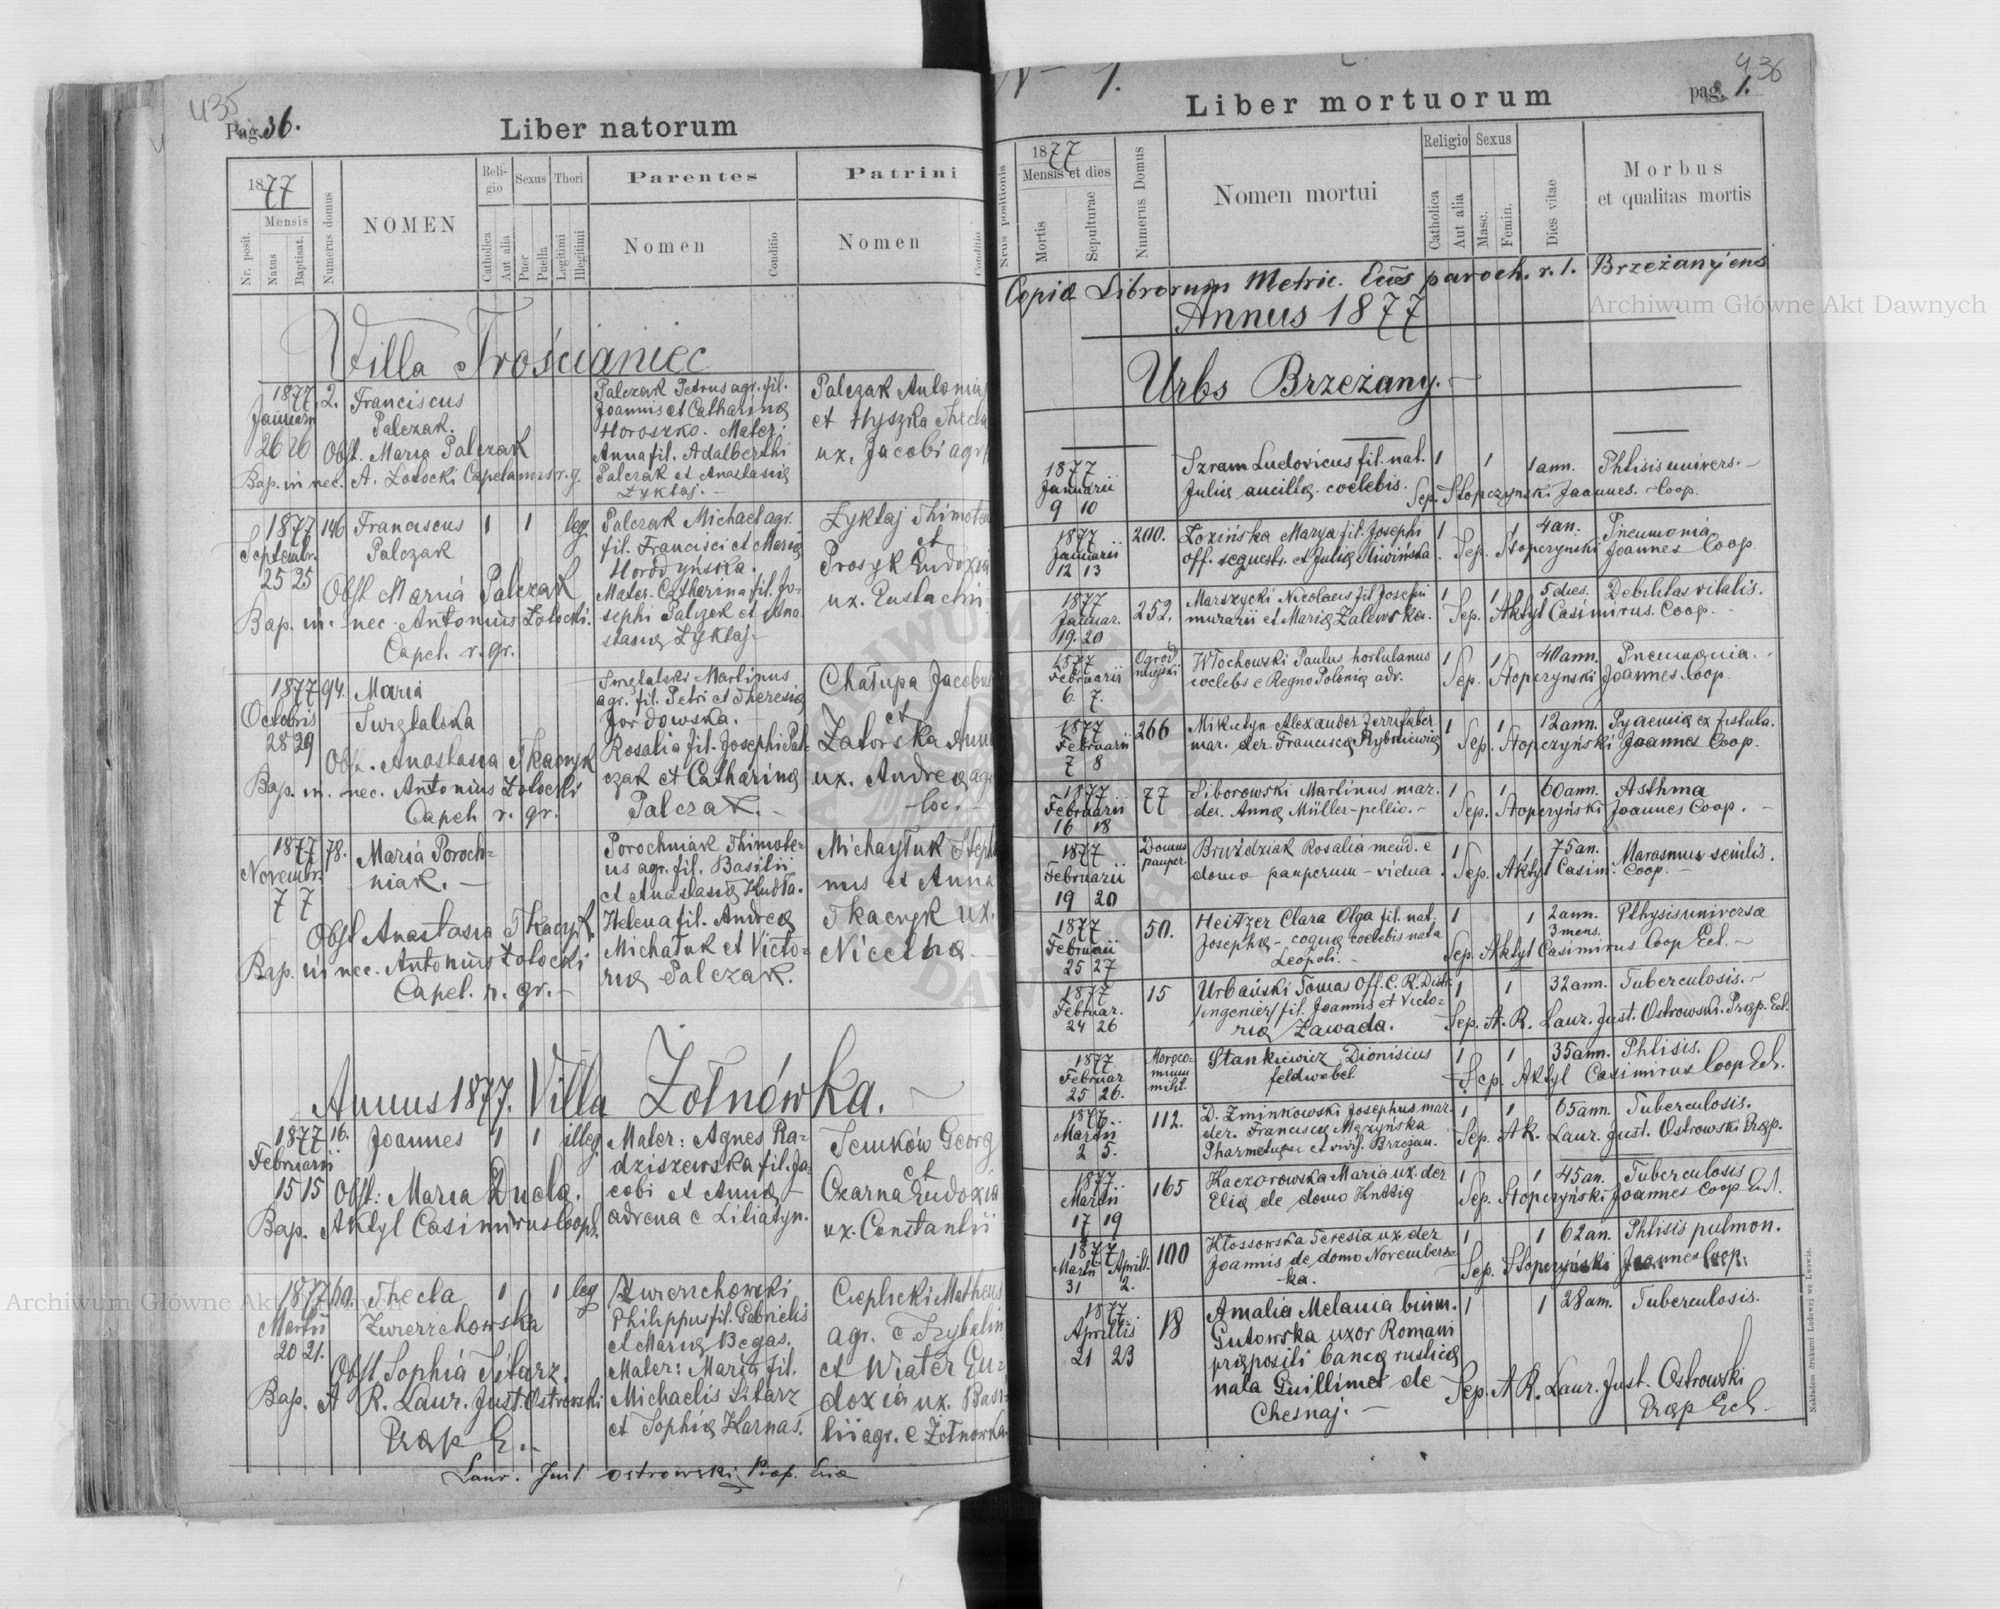 435
Pag. 36.
Liber natorum
1877
Mensis
Nr. posit.
Natus
Baptisat.
Numerus domus
NOMEN
Reli-
gio
Catholica
Aut alia
Sexus
Puer
Puella
Thori
Legitimi
Illegitimi
Parentes
Nomen
Conditio
Patrini
Nomen
Conditio
Villa Trościaniec
1877 2. Franciscus
Januarii Palczak.
26 26 Obst. Maria Palczak
Bap. in nec. A. Zołocki Capelanus r. g.
Palczak Petrus agr. fil.
Joannis et Catharina
Horoszko. Mater:
Anna fil. Adalberthi
Palczak et Anastasia
Zyktaj. -
Palczak Antonius
et Hyszka Thecla
ux. Jacobi agr.
1877 146 Franciscus 1 1 leg
Septembr. Palczak
25 25 Obst Maria Palczak
Bap. in. nec. Antonius Zołocki.
Capel. r. gr.
Palczak Michael agr.
fil. Francisci et Maria
Horodyńska.
Mater. Catharina fil. Jo-
sephi Palczek et Ana-
stasia Zyktaj -
Zyktaj Thimoteu
et
Prosyk Eudoxia
ux. Eustachii
1877 94. Maria
Octobris Swiętalska
28 29
Obst. Anastasia Tkaczyk
Bap. in. nec. Antonius Zołocki
Capel. r. gr.
Swietalski Martinus
agr. fil. Petri et Theresia
Jordowska. -
Rosalia fil. Josephi Pal-
czak et Catharina
Palczak. -
Chałupa Jacobus
et
Zatorska Anna
ux. Andrea agr
loc. -
1877 78. Maria Poroch-
Novembr. niak. -
7 7
Obst Anastasia Tkaczyk
Bap. in nec. Antonius Zołocki
Capel. r. gr. -
Porochniak Thimote-
us agr. fil. Basilii
et Anastasia Kudła.
Helena fil. Andrea
Michałuk et Victo-
ria Palczak.
Michajłuk Steph
nus et Anna
Tkaczyk ux.
Nicetha -
Annus 1877. Villa Żołnówka.
1877 16. Joannes 1 1 illeg
Februarii
15 15 Obst: Maria Ducla.
Bap. Aktyl Casimirus Coop.
Mater: Agnes Ra-
dziszewska fil. Ja-
cobi et Anna -
adrena e Liliatyn.
Senków Georg
et
Czarna Eudoxia
ux. Constantii
1877 60. Thecla 1 1 leg
Martii Zwierzchowska
20 21.
Obst Sophia Sitarz.
Bap. A R. Laur. Just. Ostrowski
Praep E. -
Zwierzchowski
Philippus fil. Gabrielis
et Maria Begas.
Mater: Maria fil.
Michaelis Sitarz
et Sophia Karnas.
Cieplicki Matheus
agr. e Trybalin
et Wiater Eu-
doxia ux. Basi-
lii agr. e Żołnówka
Laur. Just Ostrowski Praep. Ecce
436
N 1.
Liber mortuorum
pag. 1.
Nrus positionis
1877
Mensis et dies
Mortis
Sepulturae
Numerus Domus
Nomen mortui
Religio
Catholica
Aut alia
Sexus
Masc.
Femin.
Dies vitae
Morbus
et qualitas mortis
Copia Librorum Metric. Eccs paroch. r. l. Brzeżanyens
Annus 1877
Urbs Brzeżany. -
1877
Januarii
9 10
Szram Ludovicus fil. nat. 1 1 1 ann. Phtisis univers. -
Julia ancilla coelebis. Sep. Stopczynski Joannes. Coop.
1877
Januarii
12 13
200. Łozińska Marya fil. Josephi 1 1 4 an. Pneumonia
off. sequestr. et Julia Sliwińska. Sep. Stopczynski Joannes Coop
1877
Januar.
19. 20
252. Marszycki Nicolaus fil Josephi 1 1 5 dies. Debilitas vitalis.
murarii et Maria Zalewska. Sep. Aktyl Casimirus. Coop. -
1877
Februarii
6 7.
Ogród
miejski
Włochowski Paulus hortulanus 1 1 40 ann. Pneumonia.
coelebs e Regno Polonia adv. Sep. Stopczynski Joannes Coop.
1877
Februarii
7 8
266 Mikietyn Alexander ferrifaber 1 1 12 ann. Pyaemia ex fistula.
mar. der. Francisca Rybkiewicz Sep. Stopczyński Joannes Coop.
1877
Februarii
16 18
77 Siborowski Martinus mar. 1 1 60 ann. Asthma
der. Anna Müller - pellio. - Sep. Stopczyński Joannes Coop. -
1877
Februarii
19 20
Domus
pauper.
Bruździak Rosalia mend. e 1 1 75 an. Marasmus senilis.
domo pauperum - vidua. Sep. Aktyl Casim. Coop. -
1877
Februarii
25 27
50. Heitzer Clara Olga fil. nat. 1 1 2 ann. Pthysis universa
3 mens.
Josepha - coqua coelebis nata
Leopoli. -
Sep. Aktyl Casimirus Coop Ecl. -
1877
Februar.
24 26
15 Urbański Tomas Off. C. R. Distr. 1 1 32 ann. Tuberculosis. -
/ingenier/ fil. Joannis et Victo-
ria Zawada.
Sep. A. R. Laur. Just. Ostrowski. Praep. Ecl.
1877
Februar
25 26.
Moroco-
mium
milit.
Stankiewicz Dionisius 1 1 35 ann. Phtisis.
feldwebel.
Sep. Aktyl Casimirus Coop Ecl.
1877
Martii
2 5.
112. D. Zminkowski Josephus mar. 1 1 65 ann. Tuberculosis.
der. Francisca Mężyńska
Pharmetuper et civis Brzeżan.
Sep. A R. Laur. Just. Ostrowski Praep.
1877
Martii
17 19
165 Kaczorowska Maria ux. der 1 1 45 an. Tuberculosis
Elia de domo Knttig
Sep. Stopczyński Joannes Coop Ecl.
1877
Martii Aprilli.
31 2.
100 Kłossowska Teresia ux. der 1 1 62 an. Phtisis pulmon.
Joannis de domo Novembersz-
ka.
Sep. Stopczyński Joannes Coop.
1877
Aprillis
21 23
18 Amalia Melania binom. 1 1 28 am. Tuberculosis.
Gutowska uxor Romani
praepositi banca rustica
nata Guillimet de
Chesnaj. -
Sep. A R. Laur. Just. Ostrowski
Praep Ecl.
Nakładem drukarni Ludowej we Lwowie.
Archiwum Główne Akt Dawnych
Archiwum Główne Akt Dawnych